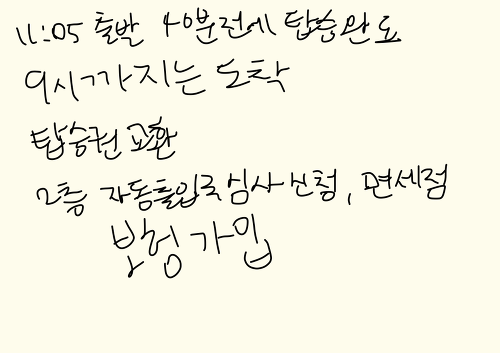 11:05 출발 40분전에 탑승완료
9시까지는 도착
탑승권 교환
2층 자동출입국심사 신청, 면세점
보험가입